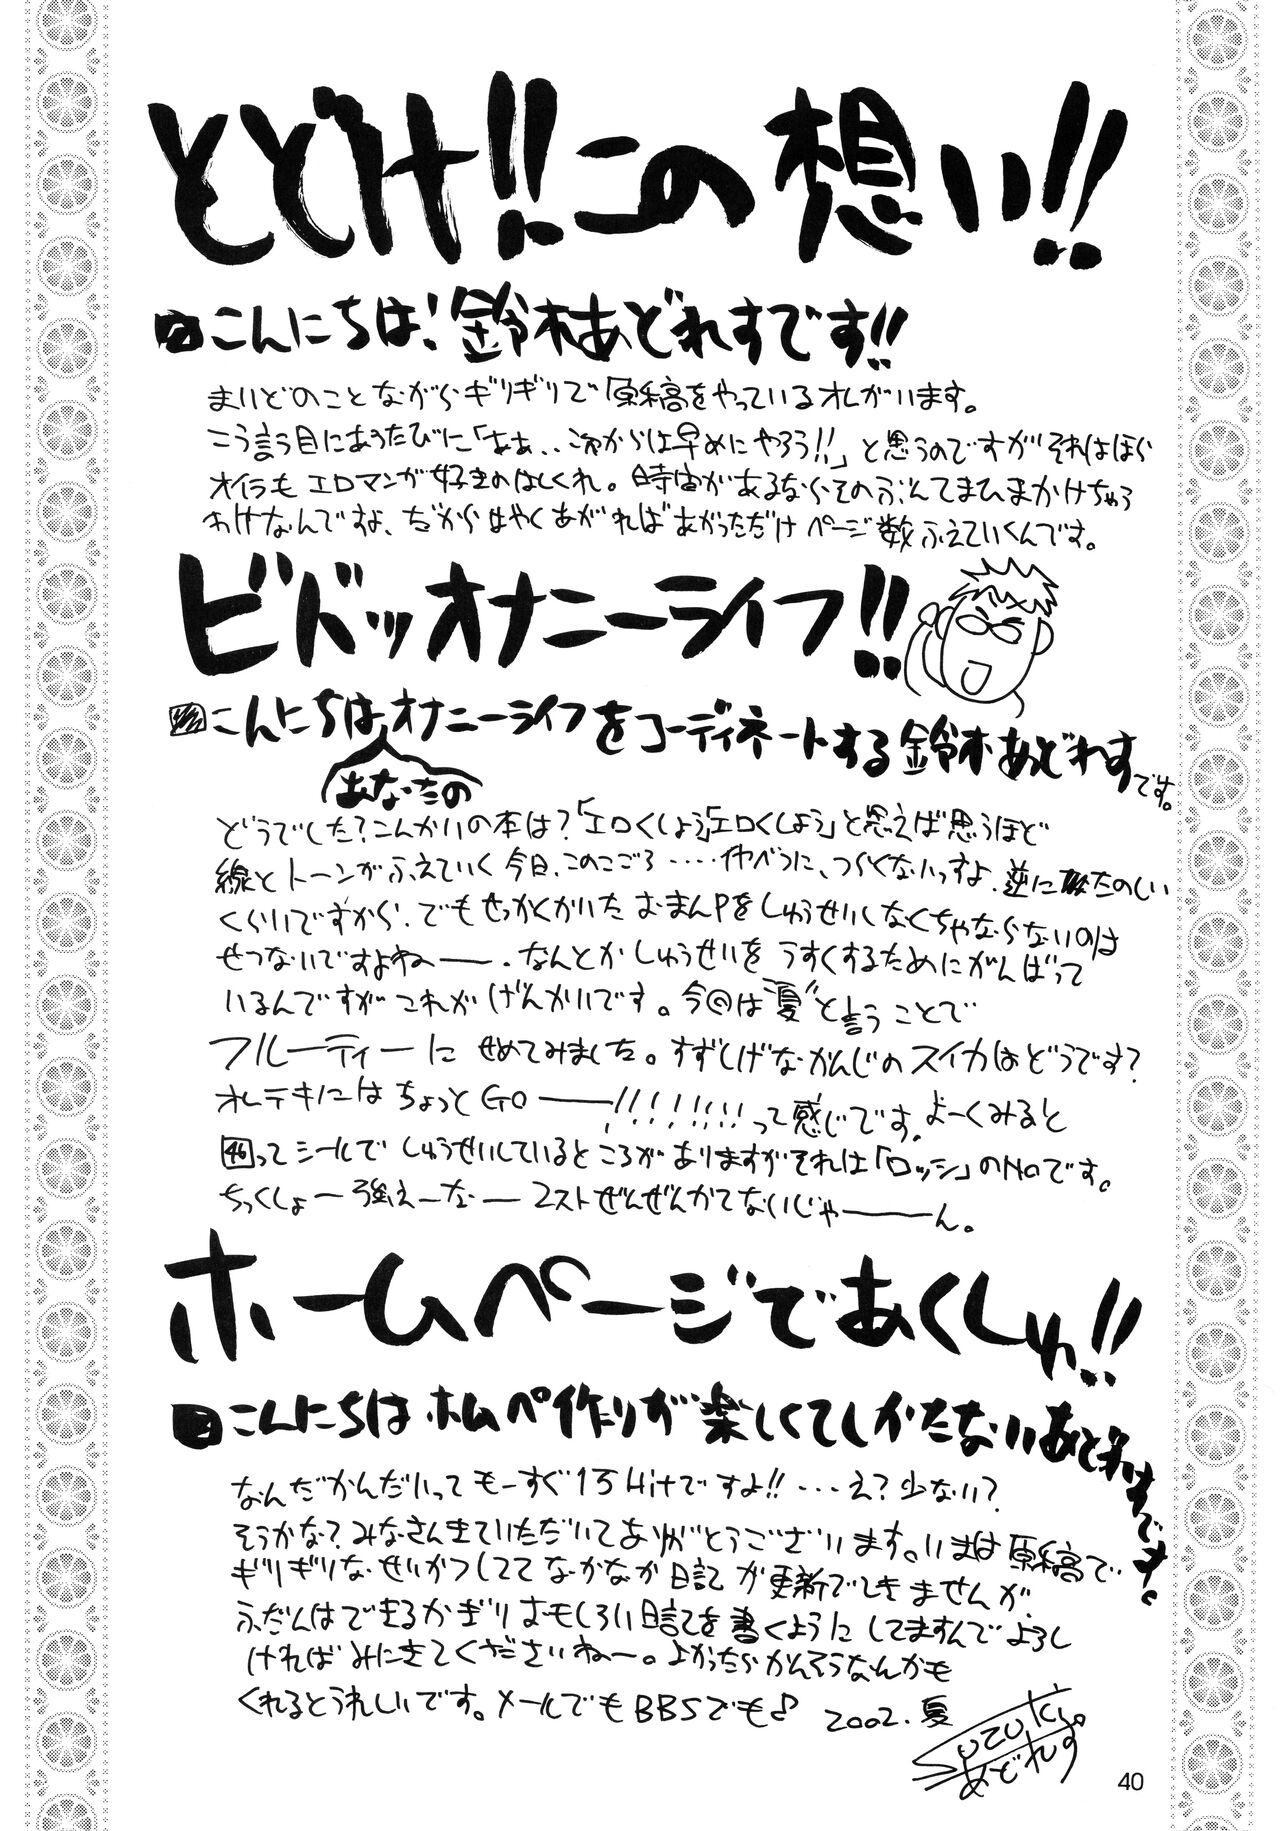 とどけ!!この想い!!
こんにちは!鈴木あどれすです!!
まいどのことながらギリギリで原稿をやっているオレがいます。
こう言う目にあうたびに「ああ..これからは早めにやろう!!」と思うのですがそれはほら
オイラもエロマンガ好きのはしくれ。時間があるならそのぶんてまひまかけちゃう
わけなんですよ、だからはやくあがればあがっただけページ数ふえていくんです。
ビバッオナニーライフ!!
こんにちはオナニーライフをコーディネートする鈴木あどれすです。
あなたの
どうでした?こんかいの本は?「エロくしよう」「エロくしよう」と思えば思うほど
線とトーンがふえていく今日、このごろ‥‥べつに、つらくないっすよ、逆にたのしい
くらいですから、でもせっかくかいたおまんPをしゅうせいしなくちゃならないのは
せつないですよねー。なんとかしゅうせいをうすくするためにがんばって
いるんですがこれがげんかいです。今回は"夏"と言うことで
フルーティーにせめてみました。すずしげなかんじのスイカはどうです?
オレテキにはちょっとGO――!!!!!!!!って感じです。よーくみると
46ってシールでしゅうせいしているところがありますがそれは「ロッシ」のNoです。
ちっくしょー強えーなー2ストぜんぜんかてないじゃーん。
ホームページであくしゅ!!
こんにちはホムペ作りが楽しくてしかたないあどれすです。
なんだかんだいってもーすぐ1万Hitですよ!!‥‥え?少ない?
そうかな?みなさんきていただいてありがとうございます。いまは原稿で
ギリギリなせいかつしててなかなか日記が更新できませんが
ふだんはできるかぎりおもしろい日記を書くようにしてますんでよろし
ければみにきてくださいねー。よかったらかんそうなんかも
くれるとうれしいです。メールでもBBSでも♪ 2002.夏
Suzuki
あどれす
40